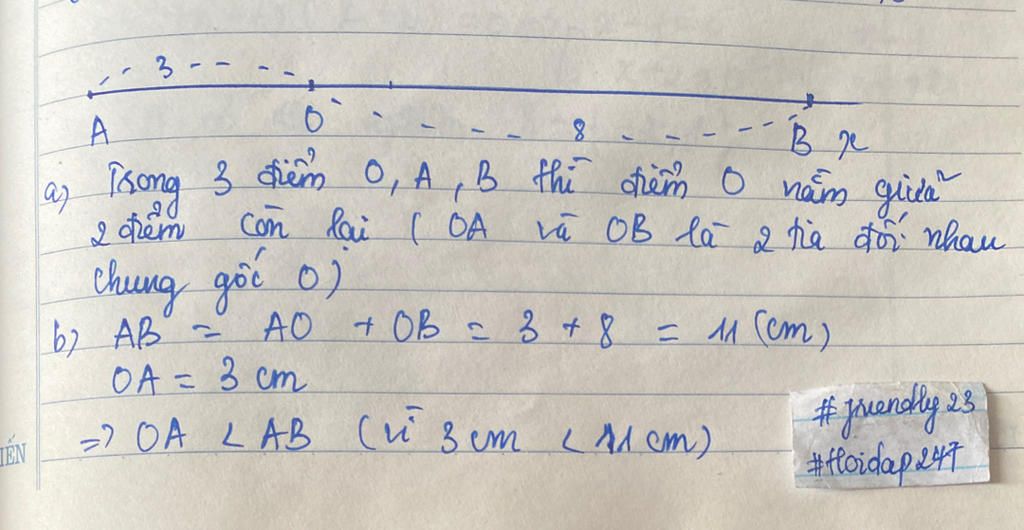 3
A O 8 B x
a) Trong 3 điểm O, A, B thì điểm O nằm giữa
2 điểm còn lại ( OA và OB là 2 tia đối nhau
chung gốc O)
b) AB = AO + OB = 3 + 8 = 11 (cm)
OA = 3 cm
=> OA < AB (vì 3 cm < 11 cm)
#friendly23
#Hoidap247
ẾN